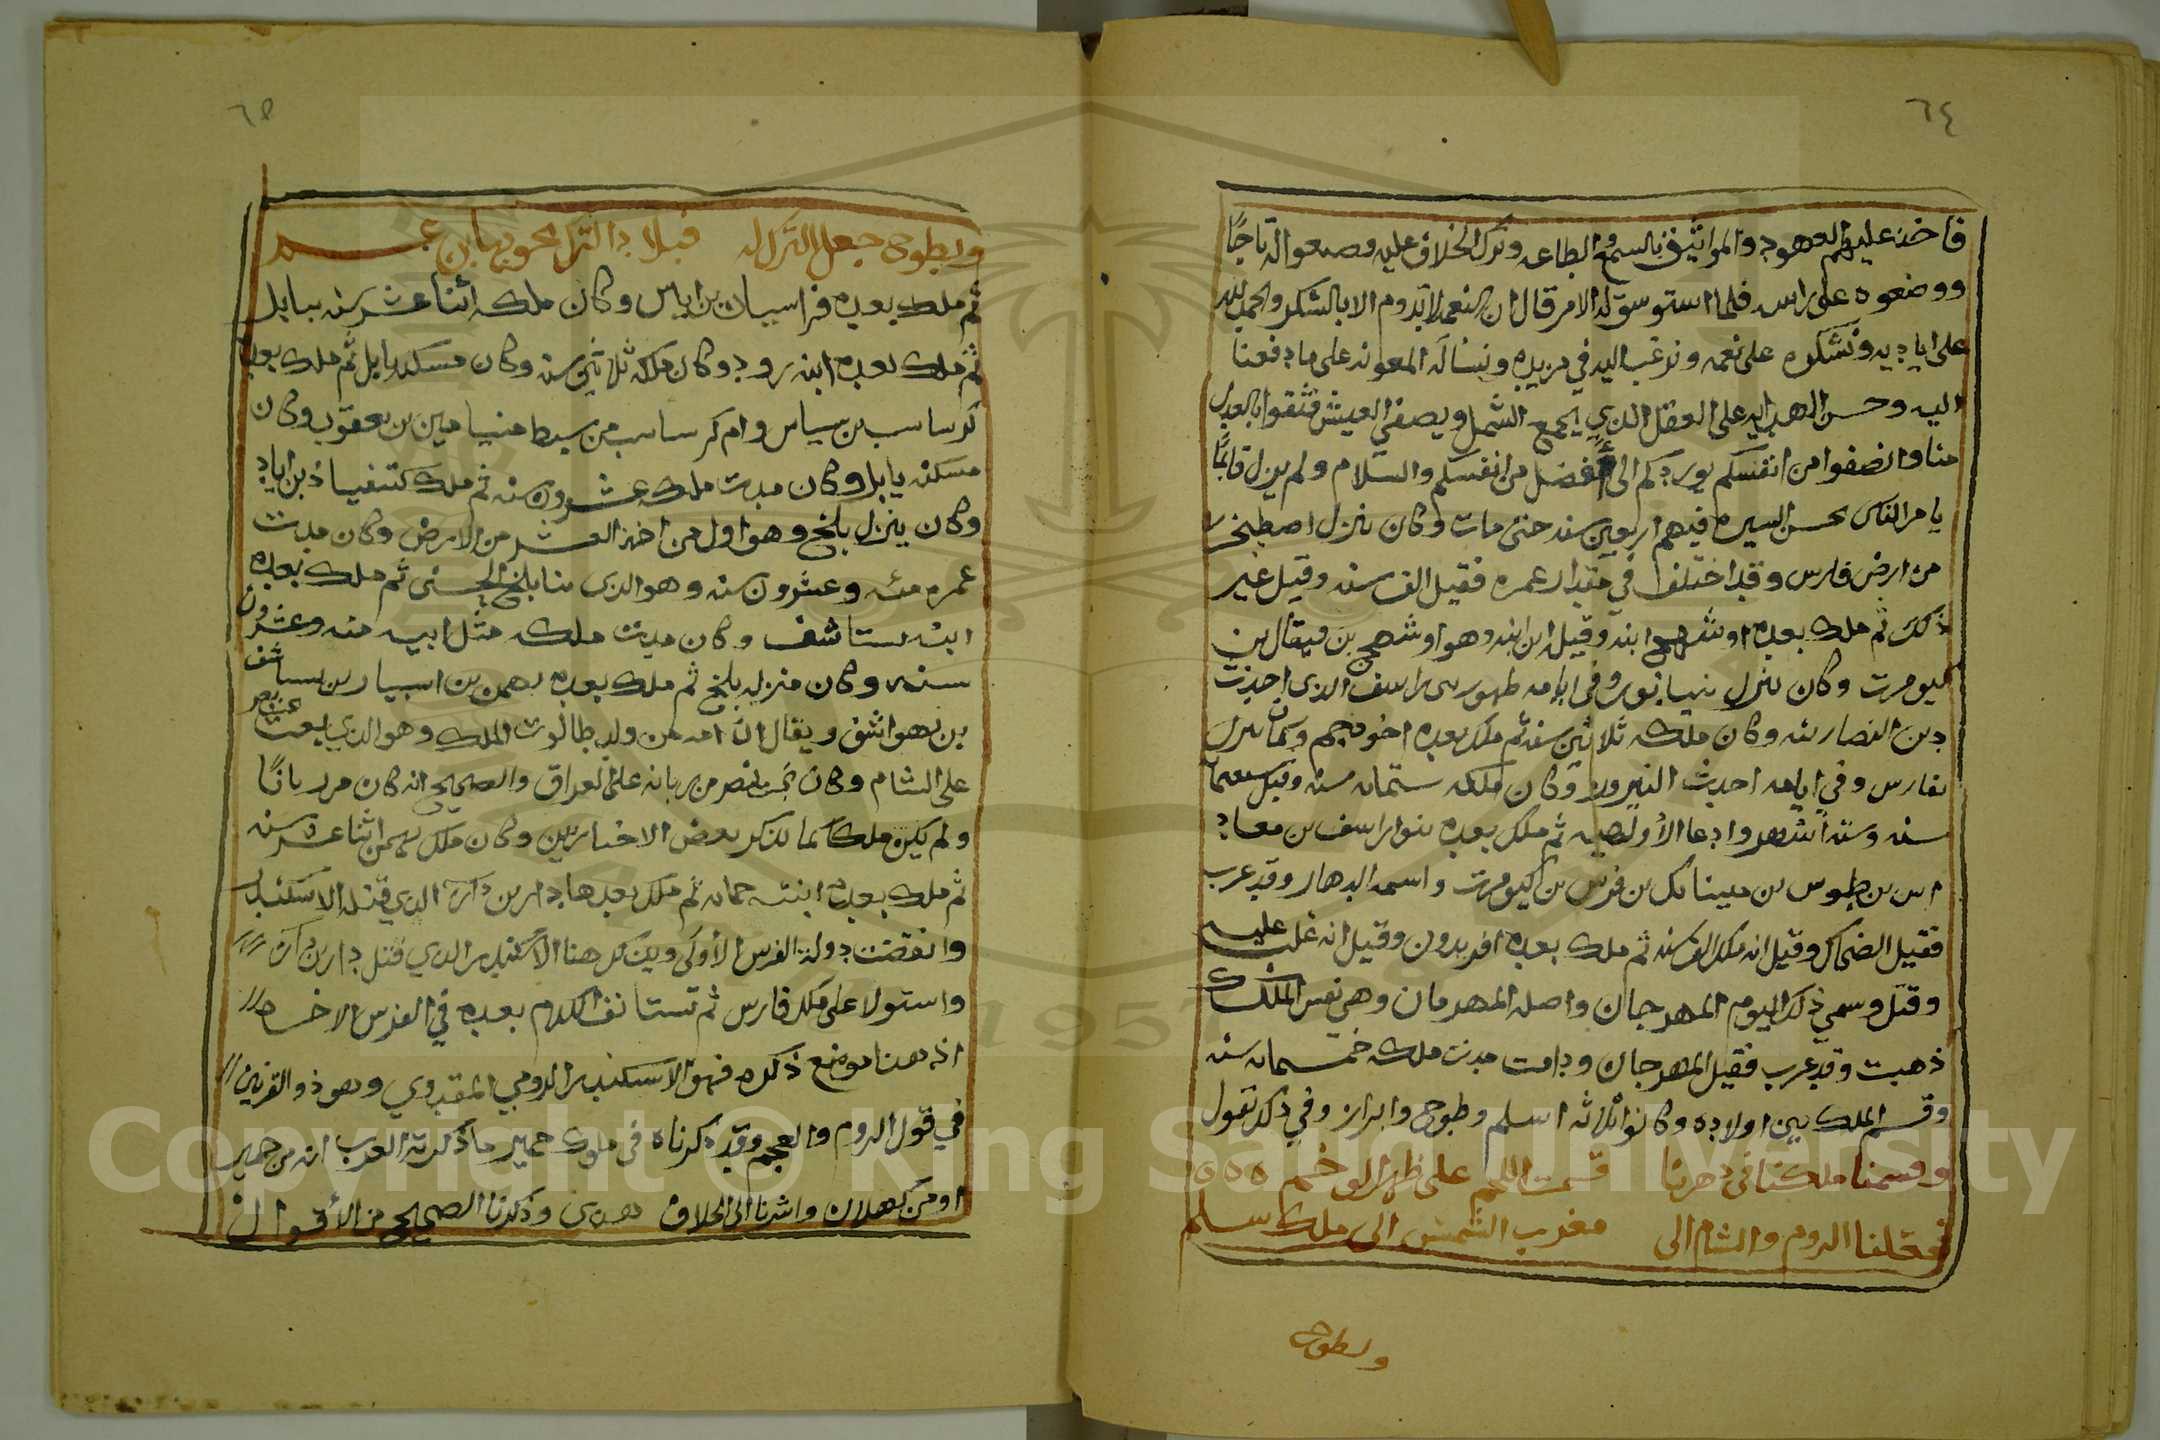 ٦٤
فاخذ عليهم العهود والمواثيق بالسمع والطاعه وترك الخلاف عليه وصنعوا له تاجًا
ووضعوه على راسه فلما استوسق له الامر قال ان النعم لا تدوم الا بالشكر والحمد لله
على اياديه ونشكره على نعمه ونرغب اليه في مزيده ونسأله المعونه على ما دفعنا
اليه وحسن الهدايه على العقل الذي يجمع الشمل ويصفي العيش فثقوا بالعدل
منا وانصفوا من انفسكم نوردكم الى افضل من انفسكم والسلام ولم يزل قائمًا
يا مر الناس بحسن السيره فيهم اربعين سنه حتى مات وكان ينزل اصطخر
من ارض فارس وقد اختلف في مقدار عمره فقيل الف سنه وقيل غير
ذلك ثم ملك بعده اوشهج ابنه وقيل ابن ابنه وهو اوشهج بن فيقال بن
كيومرت وكان ينزل وفي ايامه ظهور الذي احدث
دين وكان ملكه ثلاثين سنه ثم ملك بعده اخوه جم وكان ينزل
بفارس وفي ايامه احدث النيروز وكان ملكه ستمائه سنه وقيل
سنه وستة اشهر وادعا الألوهيه ثم ملك بعده بنوراسف بن معاد
بن طوس بن بن فرس بن كيومرت واسمه الدهار وقد عرب
فقيل الضحاك وقيل انه ملك الف سنه ثم ملك بعده افريدون وقيل انه غلب عليه
وقتل وسمي ذلك اليوم المهرجان واصله المهرمان وهي نفس الملك
ذهبت وقد عرب فقيل المهرجان ودامت مدت ملكه خمسمائه سنه
وقسم الملك بين اولاده وكانوا ثلاثه اسلم وطوح وايران وفي ذلك تقول
وقسمنا ملكنا في دهرنا قسمت اللحم على ظهر الوخم ه ه ه
فجعلنا الروم والشام الى مغرب الشمس الى ملك سلم
ولطوح
٦٥
ولطوح جعل الترك له فبلاد الترك يحويها بن عم
ثم ملك بعده فراسيان بن وكان ملكه اثنا عشر سنه ببابل
ثم ملك بعده ابنه رود وكان ملكه ثلاثين سنه وكان مسكنه بابل ثم ملك بعده
كرساسب بن سياس وام كرساسب من سبط منيامين بن يعقوب وكان
مسكنه بابل وكان مدت ملكه عشرون سنه ثم ملك بن
وكان ينزل بلخ وهو اول من اخذ العشر من الارض وكان مدت
عمره مئه وعشرون سنه وهو الذي بنا بلخ ثم ملك بعده
ابنه بستاشف وكان مدت ملكه مثل ابيه مئه وعشرون
سنه وكان منزله بلخ ثم ملك بعده بهمن بن اسبيار بن بستاشف
بن بهواشف ويقال ان امه من ولد طالوت الملك وهو الذي بعث بختنصر
على الشام وكان بختنصر مرزبانه على العراق والصحيح انه كان مرزبانًا
ولم يكن ملكًا كما يذكر بعض الاخباريين وكان ملك بهمن اثنا عشر سنه
ثم ملك بعده ابنته حمانه ثم ملك بعدها دار بن دارا الذي قتله الاسكندر
وانقضت دولة الفرس الأولى هنا الاسكندر الذي قتل دار بن دارا
واستولا على ملك فارس ثم نستانف الكلام بعده في الفرس الاخره
اذ هنا موضع ذكره فهو الاسكندر الرومي المقدوي وهو ذو القرنين
في قول الروم والعجم وقد ذكرناه في ملوك حمير ما ذكرته العرب انه من حمير
او من كهلان واشرنا الى الخلاف وذكرنا الصحيح من الأقوال